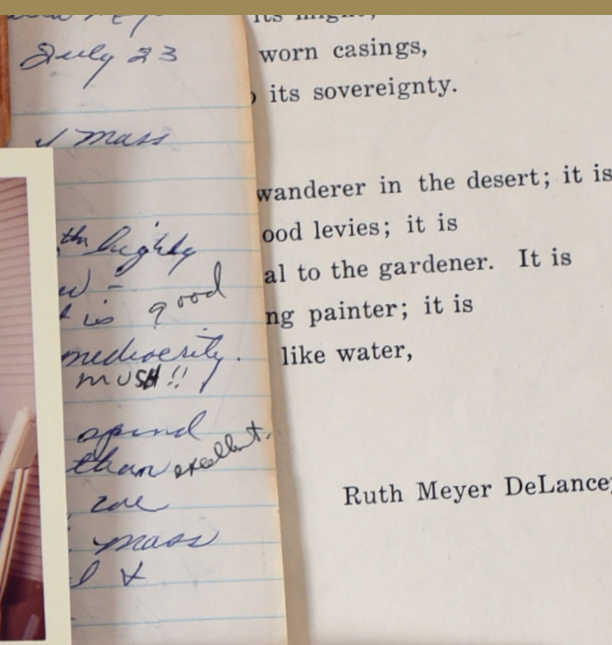 July 23
mass
highly
is good
mediocrity.
MUSH!!
spend
than excellent.
mass
its might,
worn casings,
its sovereignty.
wanderer in the desert; it is
ood levies; it is
al to the gardener. It is
ng painter; it is
like water,
Ruth Meyer DeLance